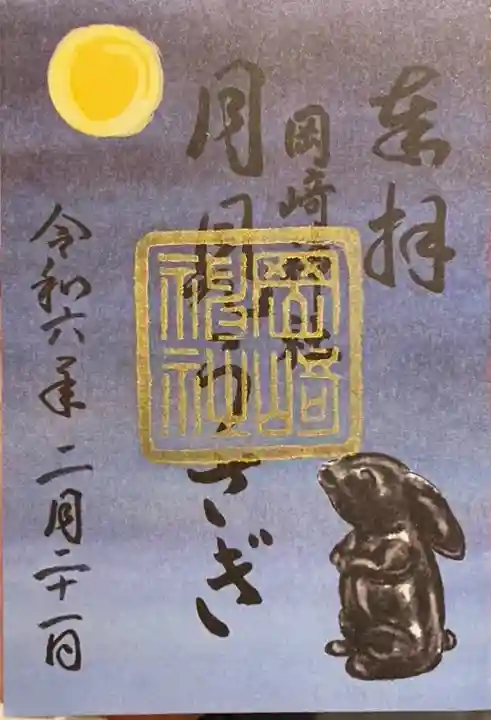 奉拝
岡崎神社
月見うさぎ
令和六年二月二十一日
岡崎
神社